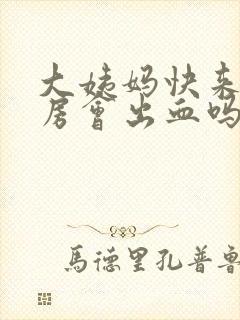 大姨妈快来
房會出血吗
馬德里孔普魯